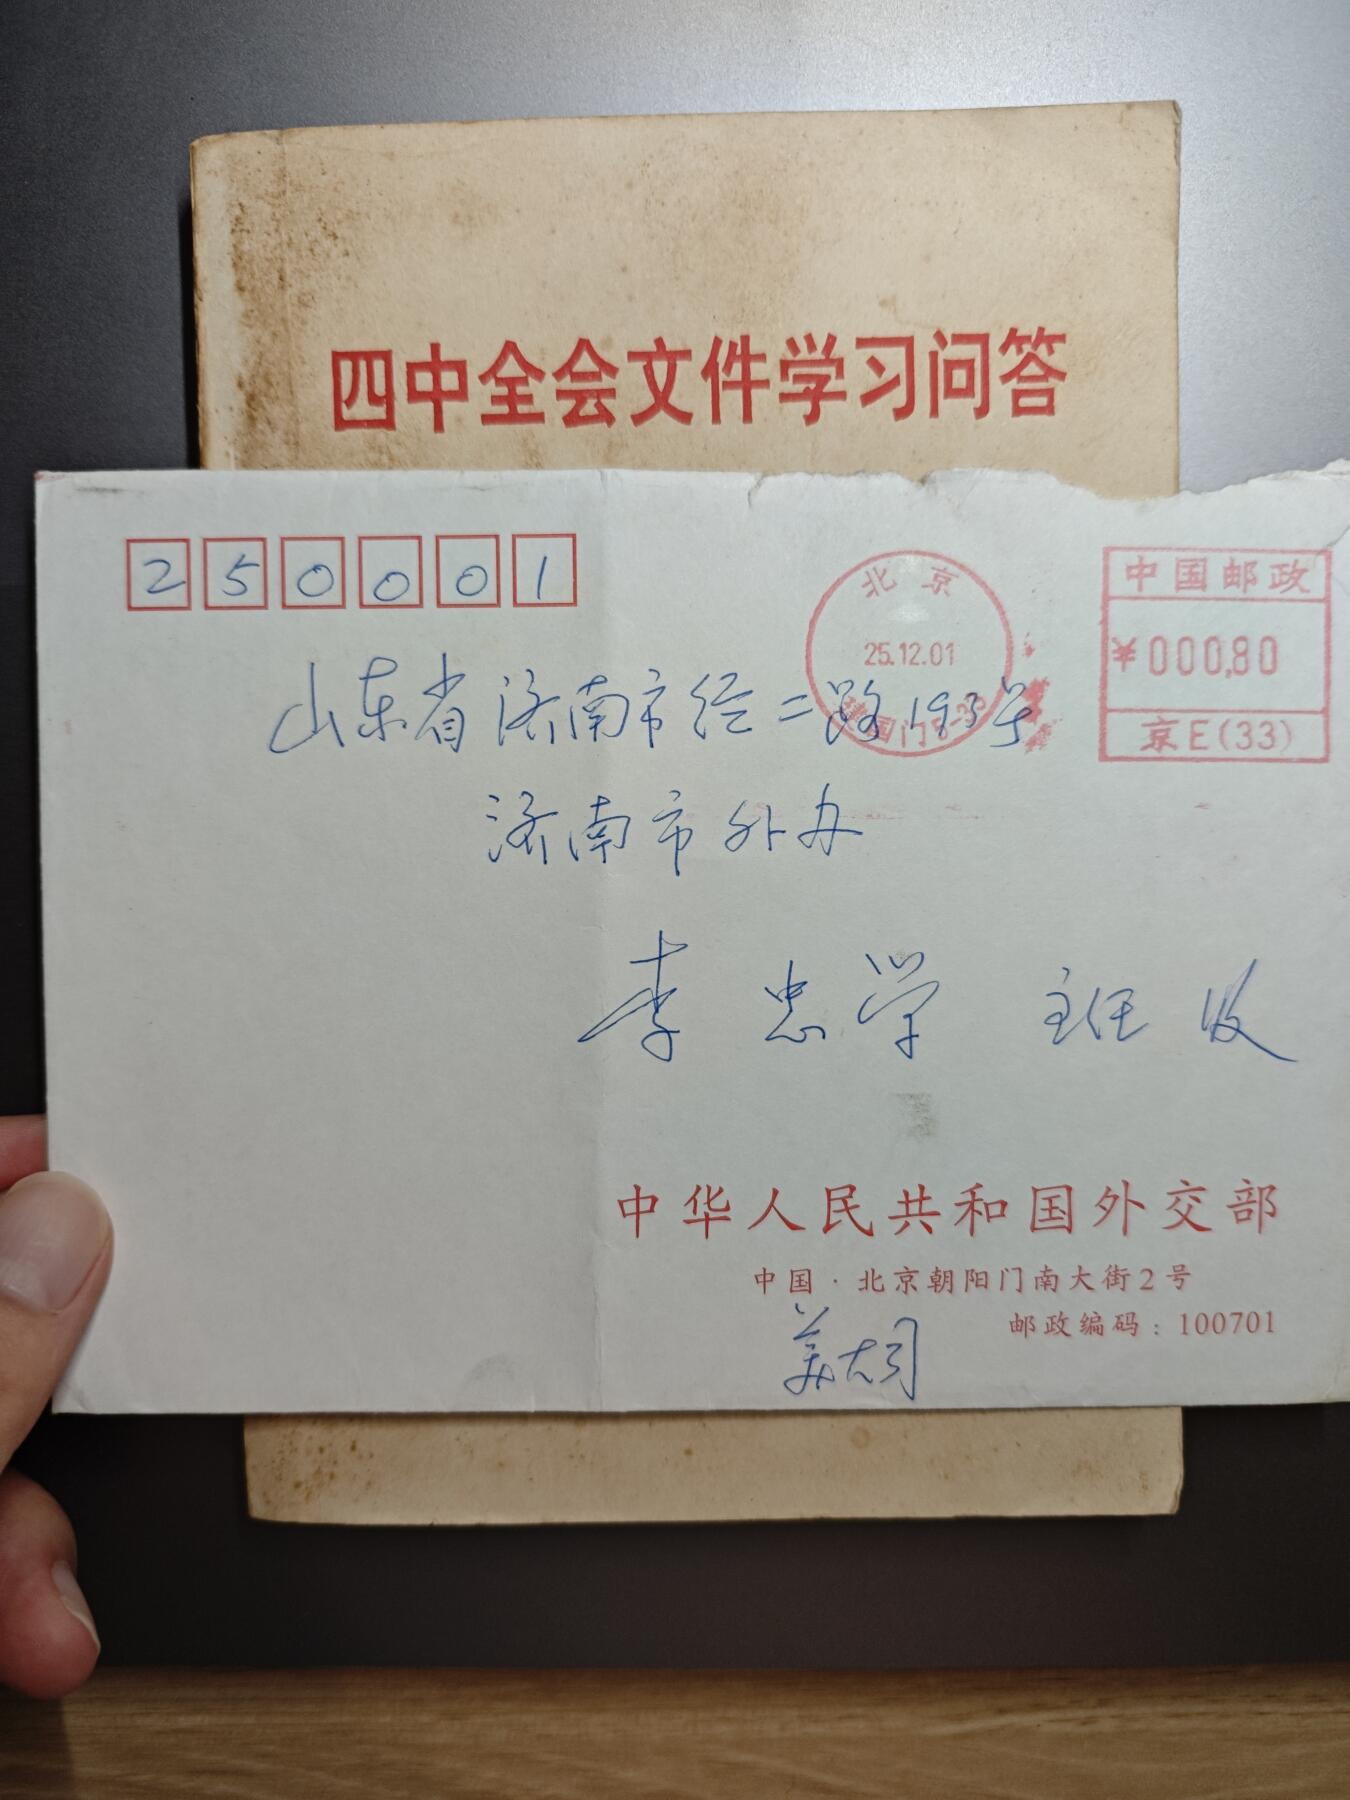 四中全会文件学习问答
250001
北京
25.12.01
建国门5-33
中国邮政
¥000,80
京E(33)
山东省济南市经二路193号
济南市外办
李忠学 主任 收
中华人民共和国外交部
中国·北京朝阳门南大街2号
邮政编码:100701
美大司